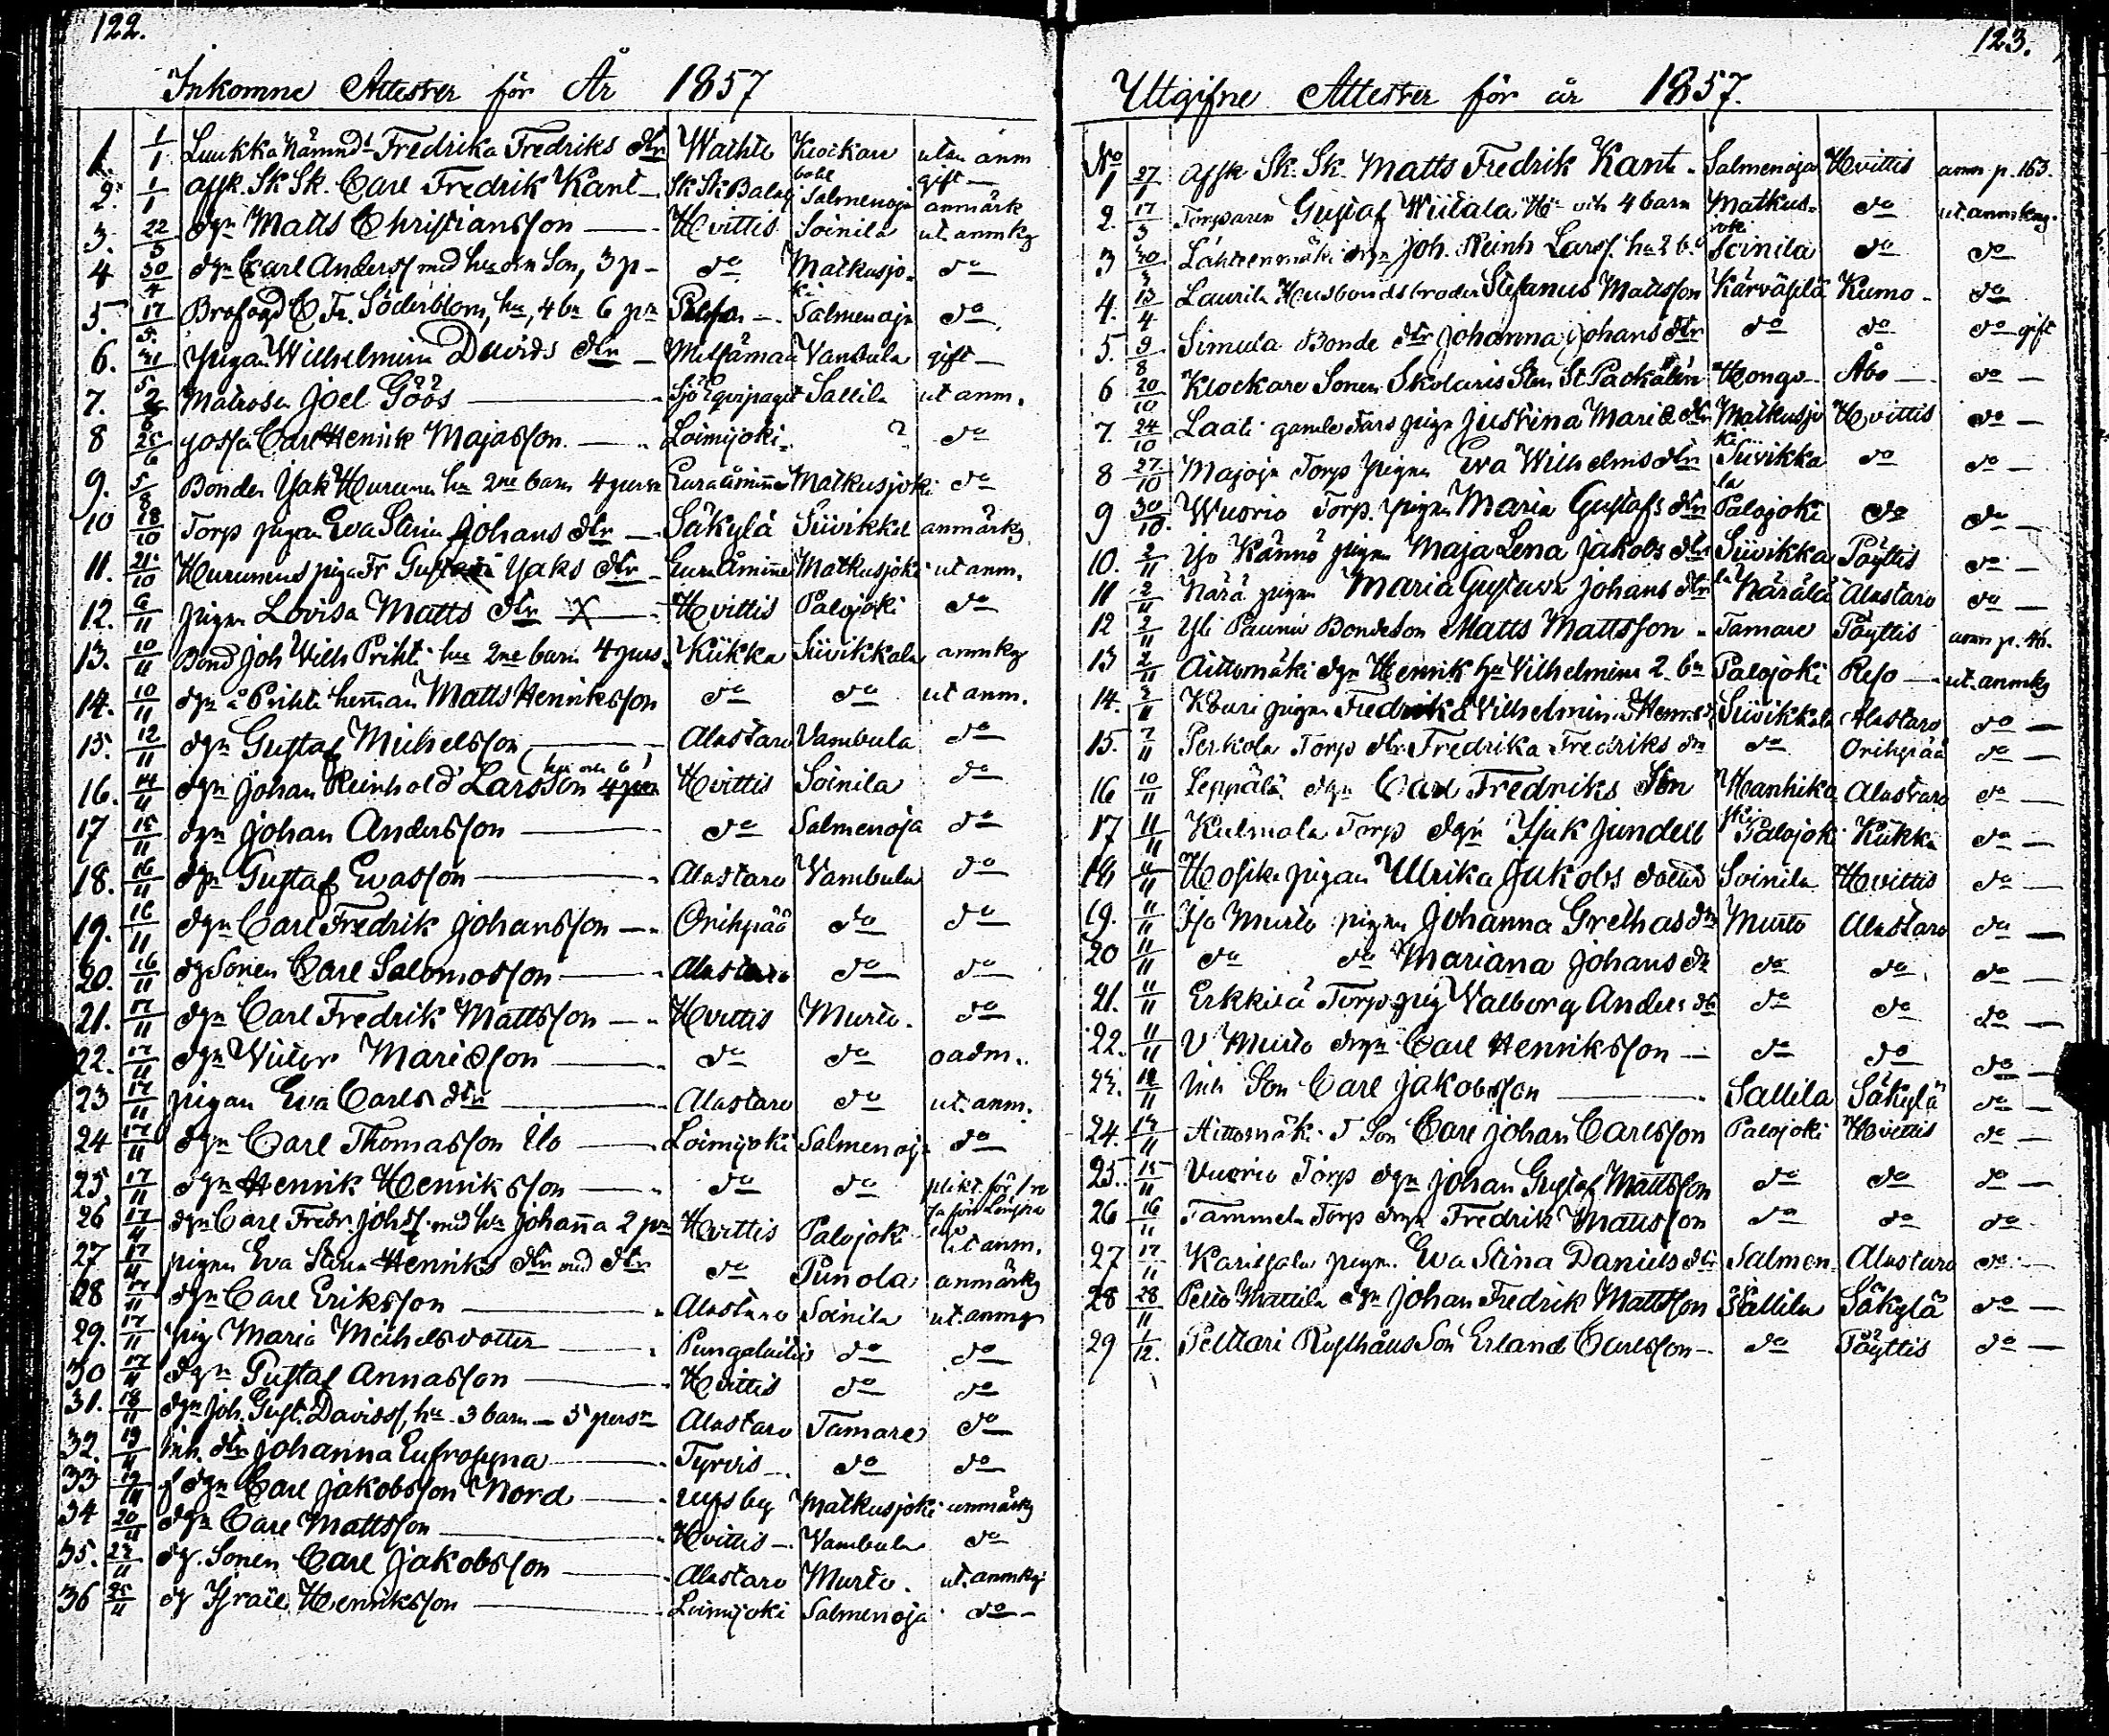 122.
Inkomne Attester för År 1857
1. 1/1 Luukka Nämnd Fredrika Fredriks dtr Wachte Klockare bohl utan anm
2. 1/1 afsk. Sk Sk. Carl Fredrik Kant Sk Sk Balaj Salmenoja gift anmärk
3. 22/3 dgn Matts Christiansson Hvittis Soinila ut anmkg
4 30/4 dgn Carl Anderss med hu och Son, 3 p do Matkusjoki do
5. 17/5. Brofogd C Fr. Söderblom, hu, 4 bn 6 pr Salmenoja do
6. 31/5 Pigan Wilhelmina Davids dtr Metsämaa Vambula gift
7. 2/6 Matrosen Joel Göös Sjö Eqvipaget Sallila ut anm.
8 25/6 gossen Carl Henrik Majasson Loimijoki ? do
9. 5/8 Bonden Isak Hurumen hu 2ne barn 4 pers Euraåminne Matkusjoki do
10 18/10 Torp pigan Eva Stina Johans dtr Säkylä Siivikkal anmärkg
11. 21/10 Hurumens piga Fr Gustafa Isaks dtr Euraåminne Matkusjoki ut anm.
12. 6/11 pigan Lovisa Matts dtr X Hvittis Palojoki do
13. 10/11 Bond Joh Wilh Prihti hu 2ne barn 4 pers. Kiikka Siivikkala anmkg
14. 10/11 dgn å Prihti hemman Matts Henriksson do do ut anm.
15. 12/11 dgn Gustaf Michelsson Alastaro Vambula do
16. 14/11 dgn Johan Reinhold Larsson 4 per Hvittis Soinila do
17 15/11 dgn Johan Andersson do Salmenoja do
18. 16/11 dgn Gustaf Evasson Alastaro Vambula do
19. 16/11 dgn Carl Fredrik Johansson Orihpää do do
20. 16/11 dg Sonen Carl Salomosson Alastaro do do
21. 17/11 dgn Carl Fredrik Mattsson Hvittis Murto. do
22. 17/11 dgn Victor Mariæson do do oadm.
23 17/11 pigan Eva Carls dtr Alastaro do ut. anm.
24 17/11 dgn Carl Thomasson Ilo Loimijoki Salmenoja do
25 17/11 dgn Henrik Henriksson do do plikt. för
26 17/11 dgn Carl Fredr Johss. med hu Johanna 2 pr Hvittis Palojoki ut anm.
27 17/11 pigan Eva Stina Henriks dtr med dtr do Punola anmärkg
28 17/11 dgn Carl Eriksson Alastaro Soinila ut. anmg
29. 17/11 pig Maria Michelsdotter Pungalaitio do do
30 17/11 dgn Gustaf Annasson Hvittis do do
31. 18/11 dgn Joh. Gust. Davidss, hu 3 barn 5 persr Alastaro Tamare do
32. 19/11 Inh. dtr Johanna Eufrosyna Tyrvis do do
33 19/11 f dgn Carl Jakobsson Nord Matkusjoki anmärkg
34 20/11 dgn Carl Mattsson Hvittis Vambula do
35. 23/11 dg. Sonen Carl Jakobsson Alastaro Murto. ut. anmkg
36 25/11 dg Israel Henriksson Loimijoki Salmenoja do
123.
Utgifne Attester för år 1857.
No
1 27/1 afsk Sk. Sk. Matts Fredrik Kant Salmenoja Hvittis anm p. 163.
2. 17/3 Torparen Gustaf Wiitala Hu och 4 barn Matkusjoki do ut anmkng.
3 30/3 Lähteenmäki drgn Joh. Reinh Larss. hu 2 b. Soinila do do
4. 13/4 Laurila Husbondsbroder Stefanus Mattsson Kärväselä Kumo do
5. 9/8 Simula Bonde dtr Johanna Johans dtr do do do gift
6 20/10 Klockare Sonen Skolaris Sten St Packalén Hongo Åbo do
7. 24/10 Laati gamle Fars piga Justina Mariæ dtr Matkusjoki Hvittis do
8 27/10 Majoja Torp Pigan Eva Wilhelms dtr Siivikkala do do
9 30/10. Wuorio Torp. Pigan Maria Gustafs dtr Palojoki do do
10. 2/11 Iso Kännö pigan Maja Lena Jakobs dtr Siivikkala Pöyttis do
11 2/11 Närä pigan Maria Gustava Johans dtr Närälä Alastaro do
12 2/11 Yli Paunu Bondeson Matts Mattsson Tamare Pöyttis anm p. 46.
13 2/11 Aittomäki dgn Henrik hu Vilhelmina 2. bn Palojoki Reso ut. anmkg
14. 3/11 Kouri pigan Fredrika Vilhelmina Henr. d. Siivikkala Alastaro do
15. 7/11 Perkola Torp dtr Fredrika Fredriks dtr do Orihpää do
16 10/11 Leppälä dgn Carl Fredriks Son Hanhikoski Alastaro do
17 11/11 Kulmala Torp dgn Isak Jundell Palojoki Kiikka do
18 11/11 Hosike pigan Ulrika Jakobs dotter Soinila Hvittis do
19. 11/11 Iso Murto pigan Johanna Grethas dtr Murto Alastaro do
20 11/11 do do Mariana Johans dr do do do
21. 11/11 Erkkilä Torp pig Valborg Anders dtr do do do
22. 11/11 V Murto drgn Carl Henriksson do do do
23. 12/11 Inh Son Carl Jakobsson Sallila Säkylä do
24. 14/11 Aittomäki T Son Carl Johan Carlsson Palojoki Hvittis do
25. 15/11 Vuorio Torp dgn Johan Gustaf Mattsson do do do
26 16/11 Tammela Torp drgn Fredrik Mattsson do do do
27 17/11 Karisjala pigan Eva Stina Daniels dtr Salmenoja Alastaro do
28 28/11 Pelto Mattila dgn Johan Fredrik Mattsson Sallila Säkylä do
29 1/12. Pelttari Rusthåls Son Erland Carlsson do Pöyttis do